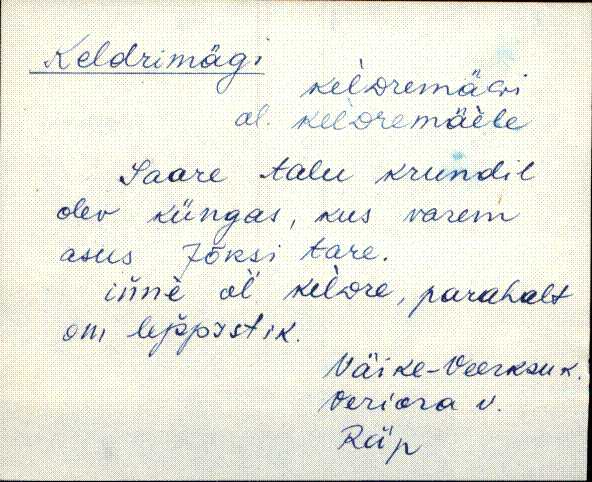 Keldrimägi
kèl̀dremäǵi
al. kèl̀dremäèle
Saare talu krundil
olev küngas, kus varem
asus Jõksi tare.
iinnè ol̀l kèl̀dre, parahalt
om leppistik.
Väike-Veerksu k.
Veriora v.
Räp